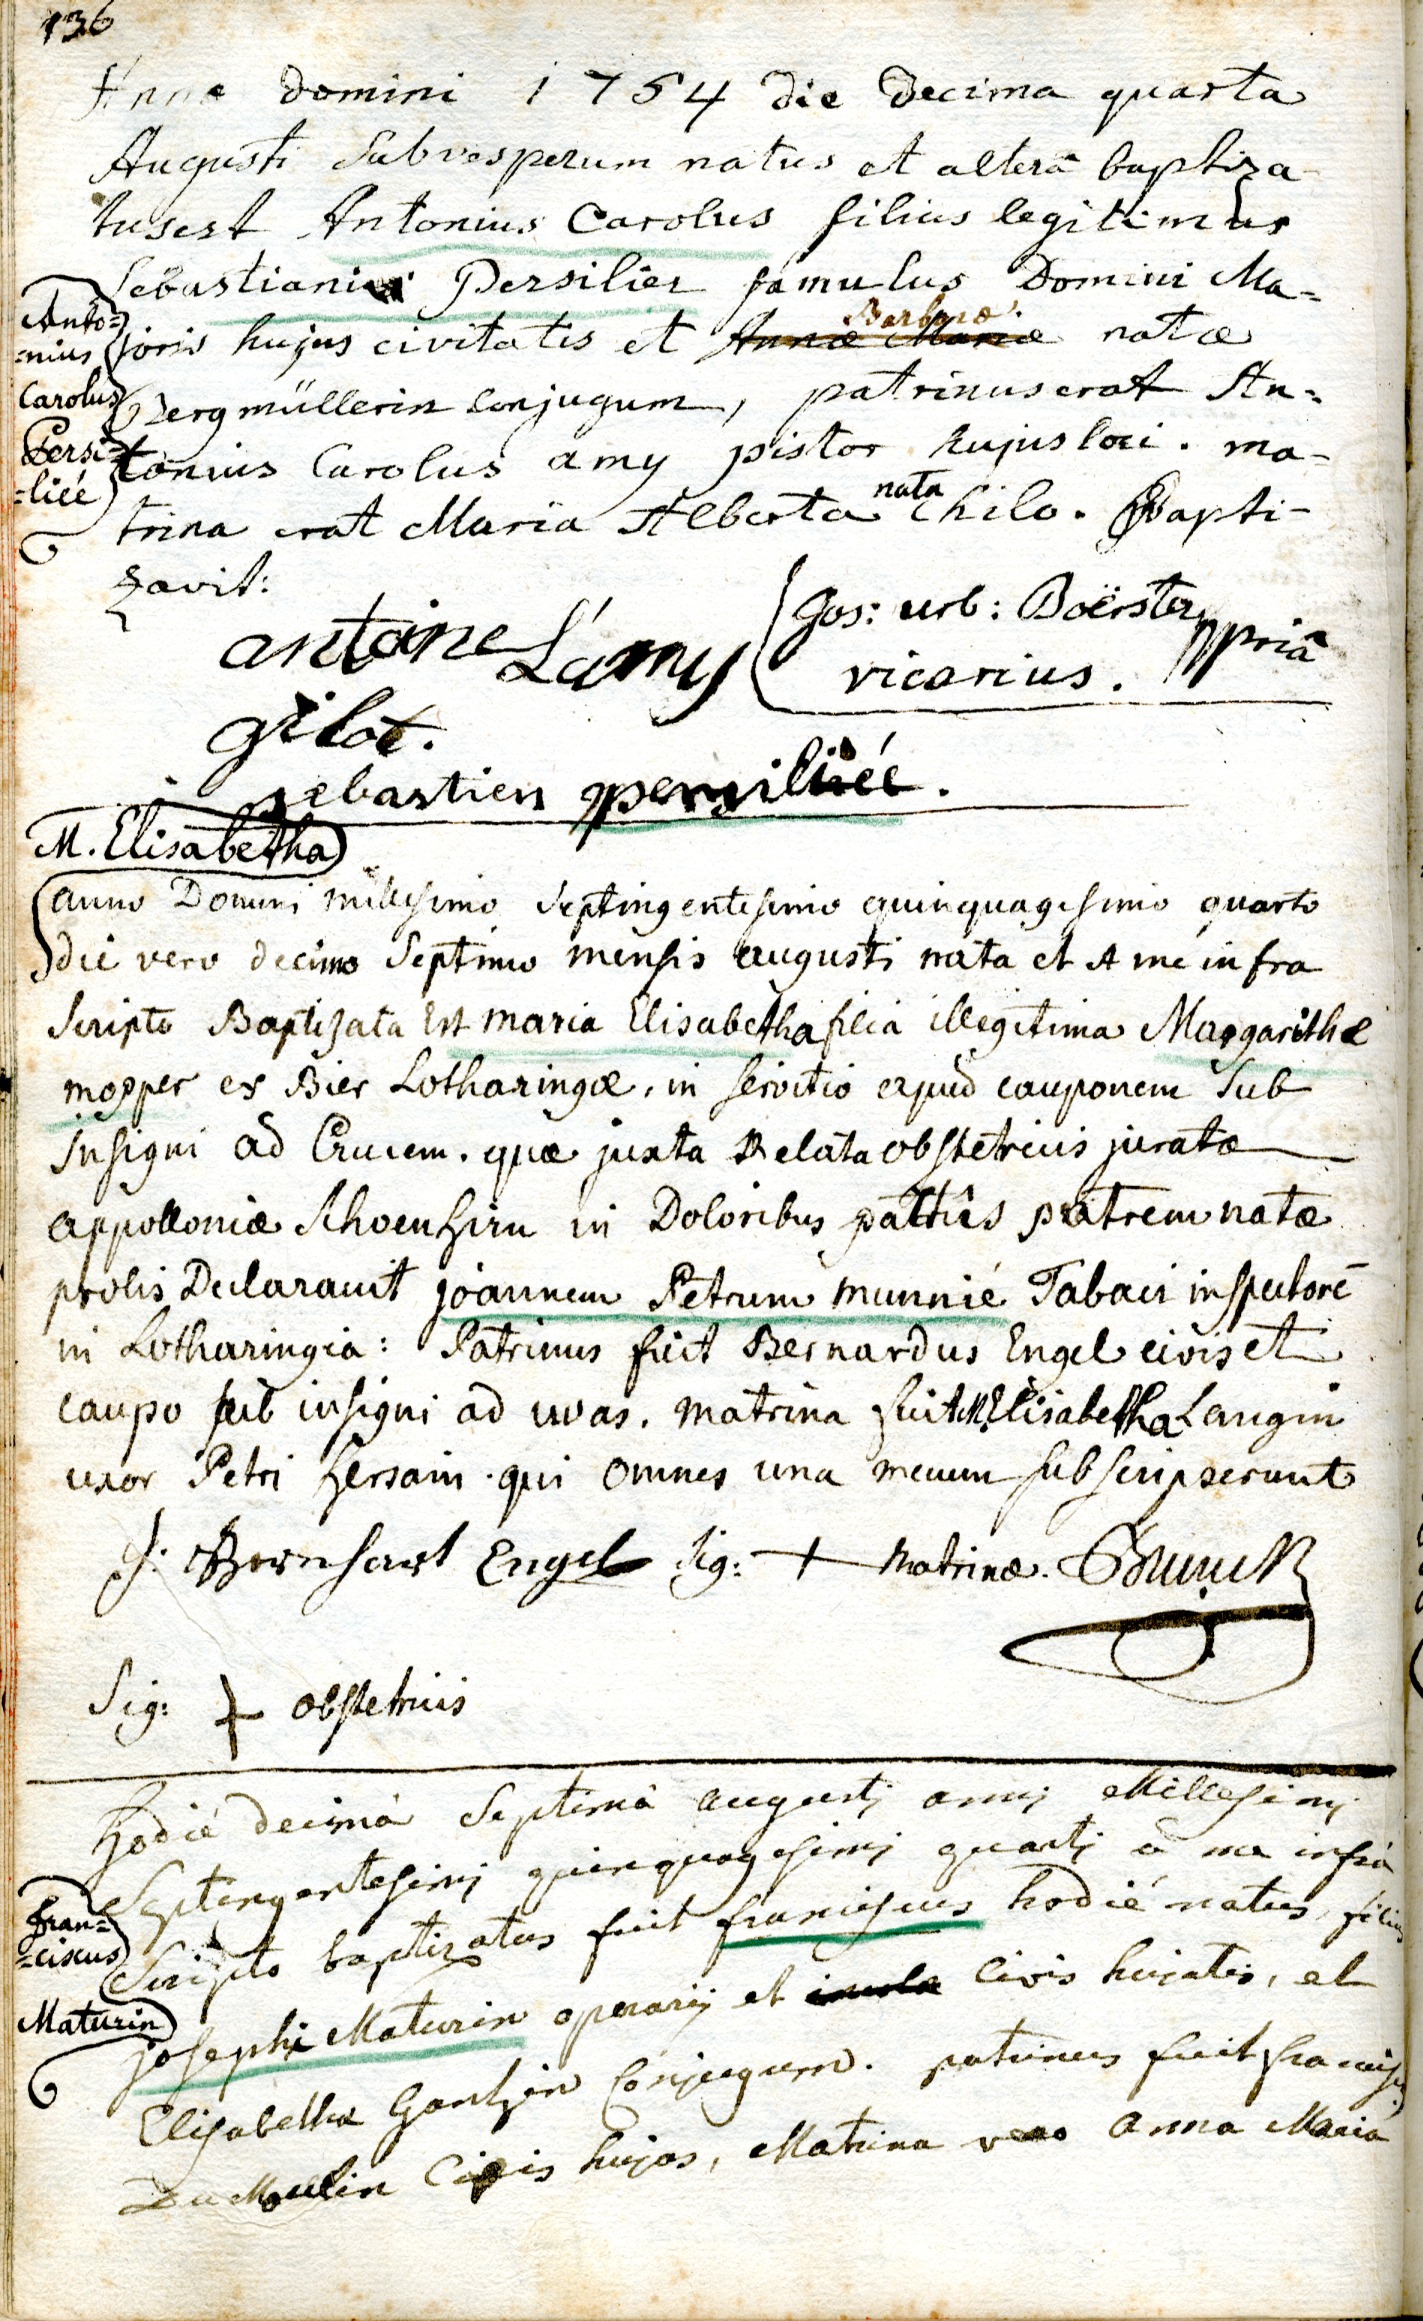 136
Anno Domini 1754 die Decima quarta
Augusti Subvesperum natus et alterâ baptiza-
tusest Antonius Carolus filius legitimus
Sebastiani Persilier famulus Domini Ma=
joris hujus civitatis et Annæ Mariæ Barbaræ natæ
Bergmüllerin Conjugum, patrinus erat An=
tonius Carolus amy pistor hujus loci. ma-
trina erat Maria Alberta nata Chilo. Bapti-
zavit:
Anto=
=nius
Carolus
Persi=
=lieé
Jos: urb: Boërster ppriâ
vicarius.
antoine Lámy
gilot.
sebastien persilieé.
M. Elisabetha
anno Domini millesimo Septingentesimo quinquagesimo quarto
die vero decimo Septimo mensis augusti nata et A me infra
Scripto Baptizata Est maria Elisabetha filia illegitima Margarithæ
mopper ex Bier Lotharingæ, in servitio apud cauponem Sub
Insigni ad Crucem. quæ juxta Relata obstetricis juratæ
appolloniæ Schoenhirn in Doloribus partûs patrem natæ
prolis Declarauit joannem Petrum munnié Tabaci inspectorē
in Lotharingia: Patrinus fuit Bernardus Engel civis et
caupo sub insigni ad uvas. matrina fuit M. Elisabetha Langin
uxor Petri hersain. qui omnes una mecum subscripserunt
J: Bernhart Engel Sig: + matrinæ. Brunck
Sig: + obstetricis
hodié decimâ Septimâ augustj annj Millesimj
Septengentesimj quinquagesimj quartj â me infrâ
Scripto baptizatus fuit franciscus hodié natus, filius
josephi Maturin operarij et incolæ Civis hujatis, et
Elisabethæ Conjugum. patrinus fuit francisc,
Du Moulin Civis hujas, Matrina vero Anna Maria
Fran=
=ciscus
Maturin